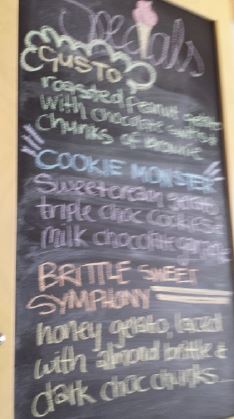 Specials
GUSTO
roasted peanut gelato
with chocolate
chunks of brownie
COOKIE MONSTER
Sweetcream gelato
triple choc cookies
milk chocolate
BRITTLE SWEET
SYMPHONY
honey gelato, laced
with almond brittle &
dark choc chunks